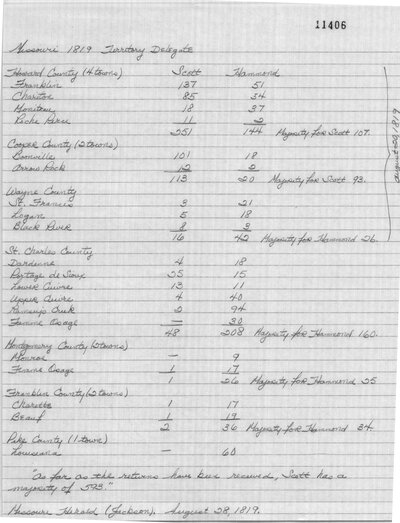 11406
Missouri 1819 Territory Delegate
Howard County (4 towns) Scott Hammond
Franklin 137 51
Chariton 85 34
Moniteau 18 37
Roche Perce 11 2
251 144 Majority for Scott 107.
Cooper County (2 towns)
Boonville 101 18
Arrow Rock 12 2
113 20 Majority for Scott 93.
august 20, 1819
Wayne County
St. Francis 3 21
Logan 5 18
Black River 8 3
16 42 Majority for Hammond 26.
St. Charles County
Dardenne 4 18
Portage de Soux 25 15
Lower Cuivre 13 11
Upper Cuivre 4 40
Creek 2 94
Femme Osage — 30
48 208 Majority for Hammond 160.
Montgomery County (2 towns)
Monroe — 9
Femme Osage 1 17
1 26 Majority for Hammond 25
Franklin County (2 towns)
Charette 1 17
Beauf 1 19
2 36 Majority for Hammond 34.
Pike County (1 town)
Louisiana — 60
"as far as the returns have been received, Scott has a
majority of 593."
Missouri Herald (Jackson). August 28, 1819.